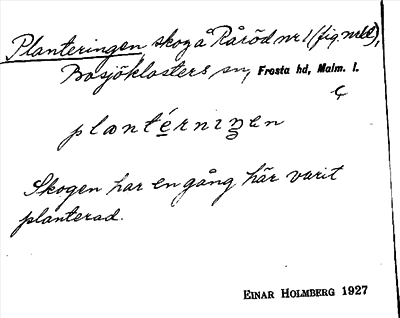 Planteringen, skog å Råröd nr 1 (fig. m. ett),
Bosjöklosters sn, Frosta hd, Malm. l.
plantérningen
Skogen har en gång här varit
planterad.
EINAR HOLMBERG 1927